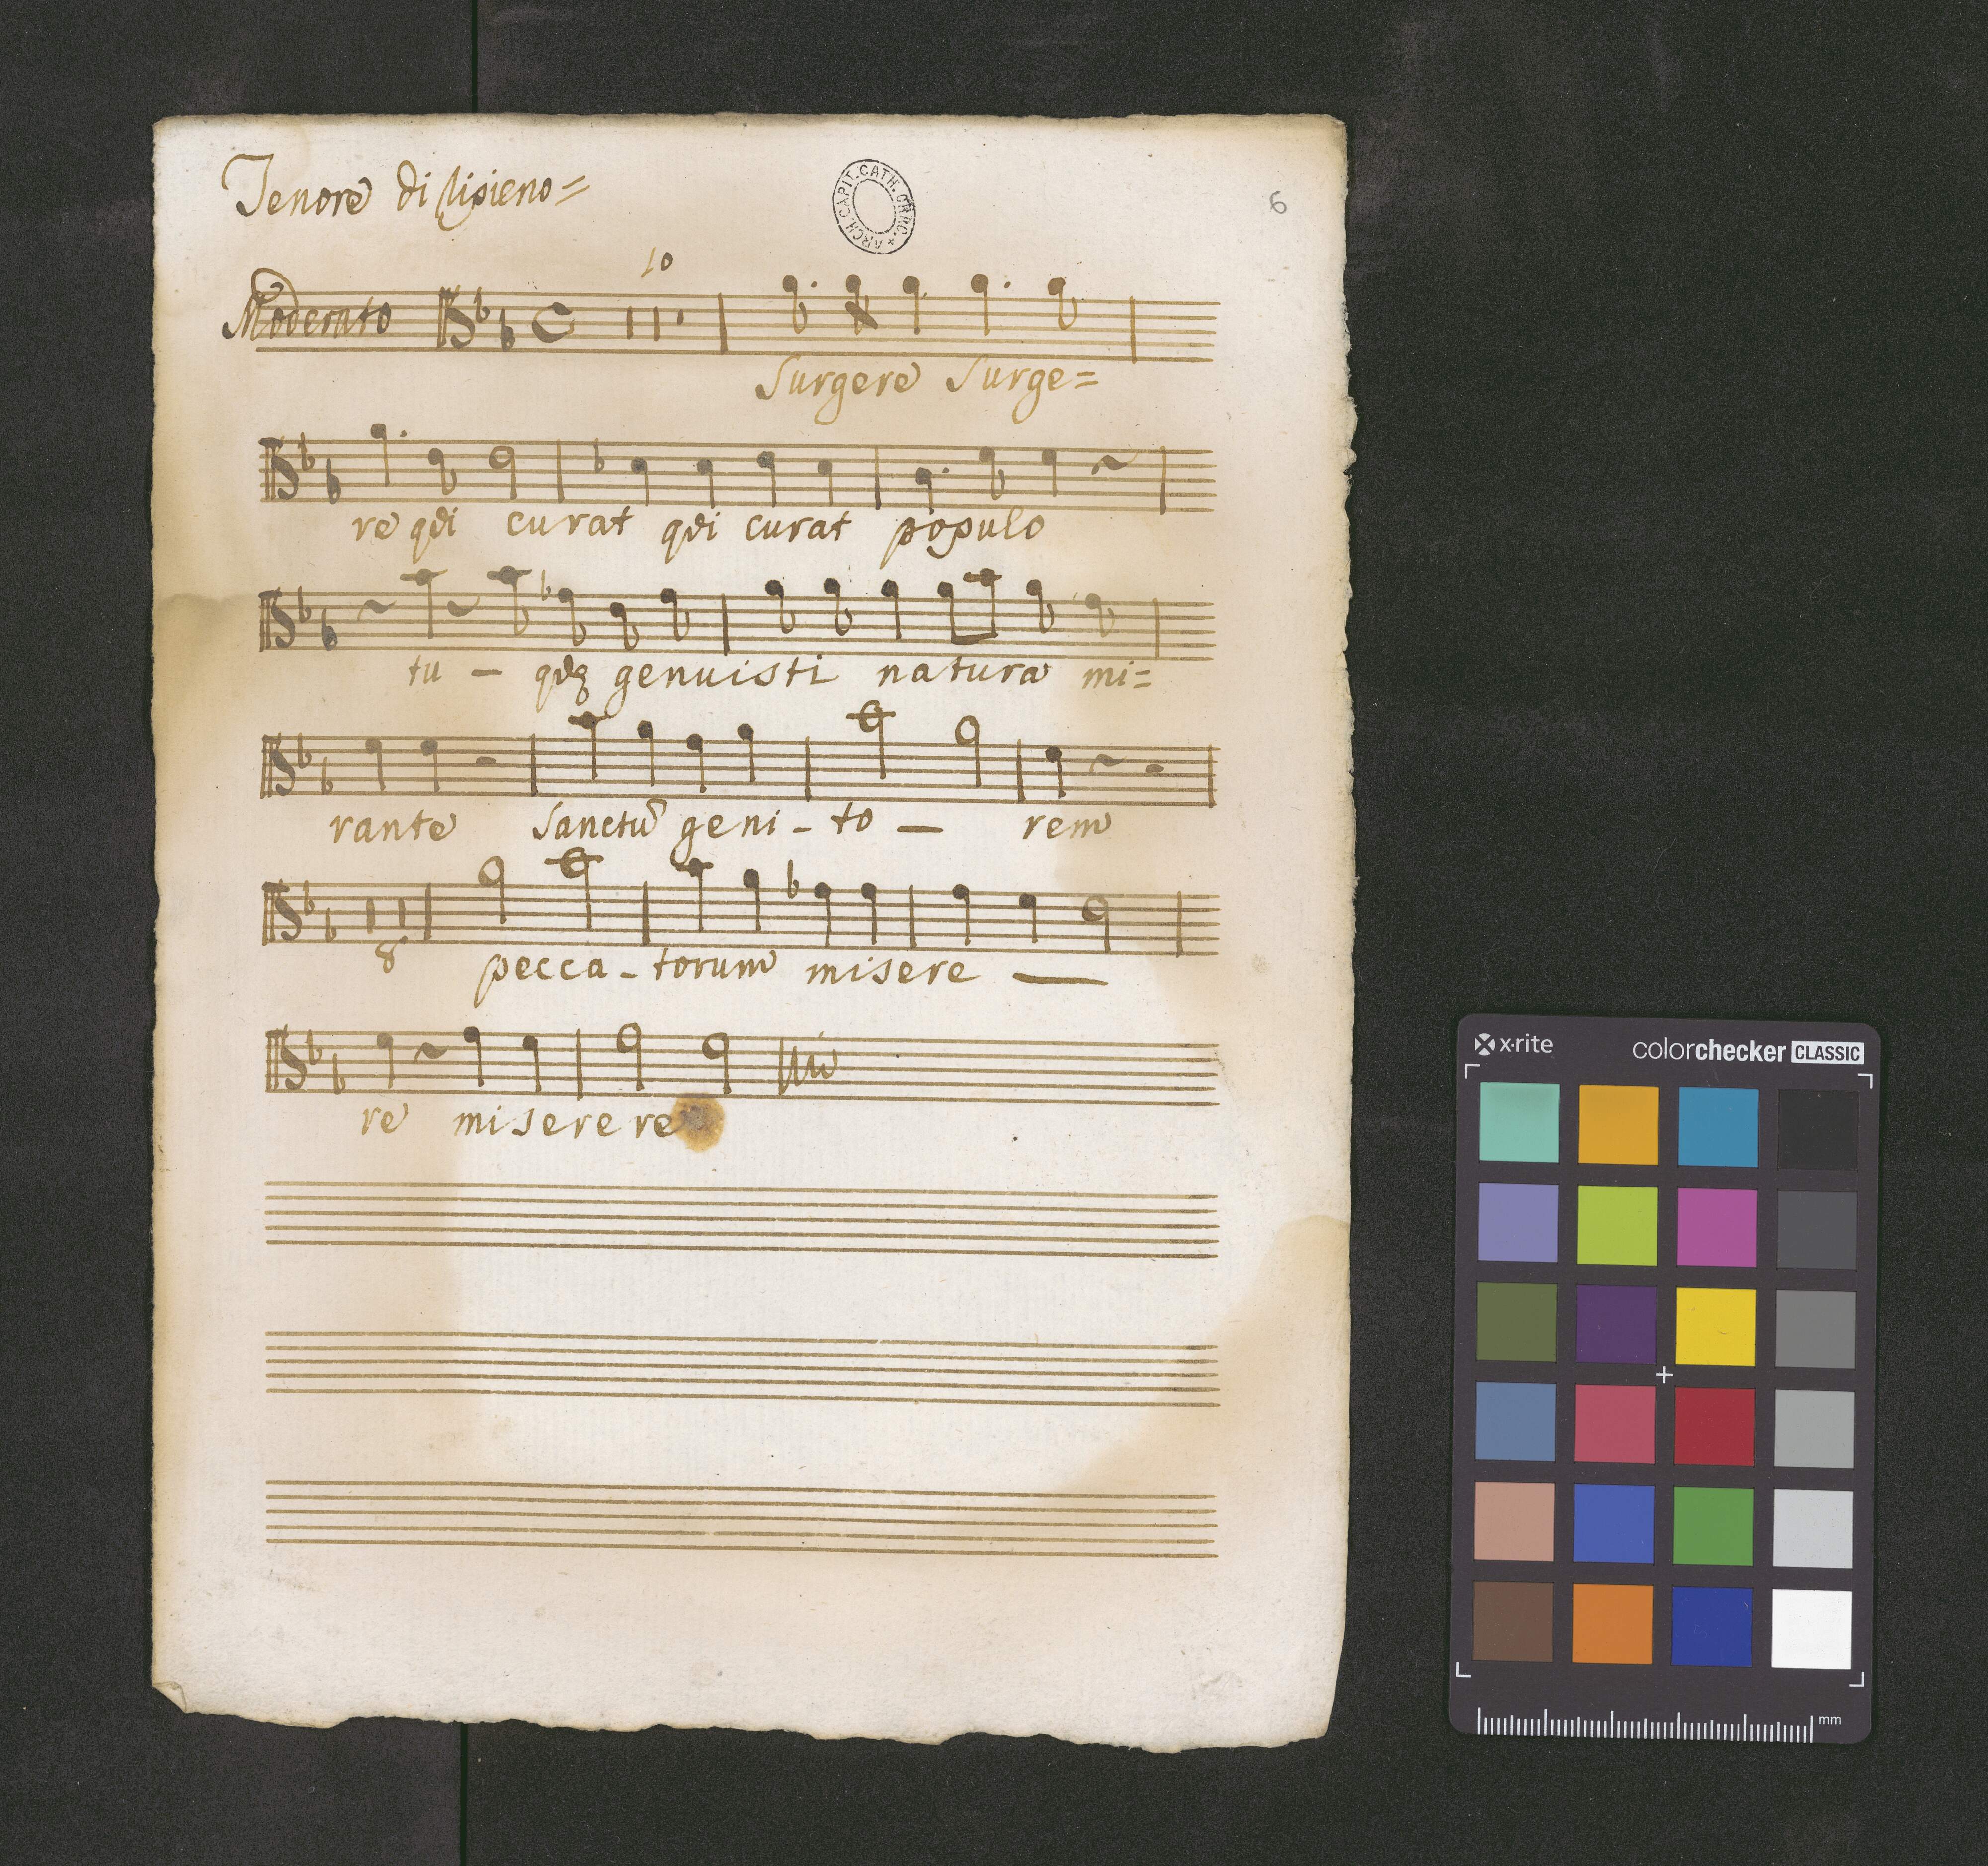 Tenore di Ripieno=
ARCH. CAPIT. CATH. GRAC. +
6
10
Moderato
Surgere Surge=
re qui curat qui curat populo
tu – quæ genuisti natura mi=
rante Sanctũ geni - to — rem
8
pecca - torum misere —
re miserere
x·rite
colorchecker CLASSIC
mm